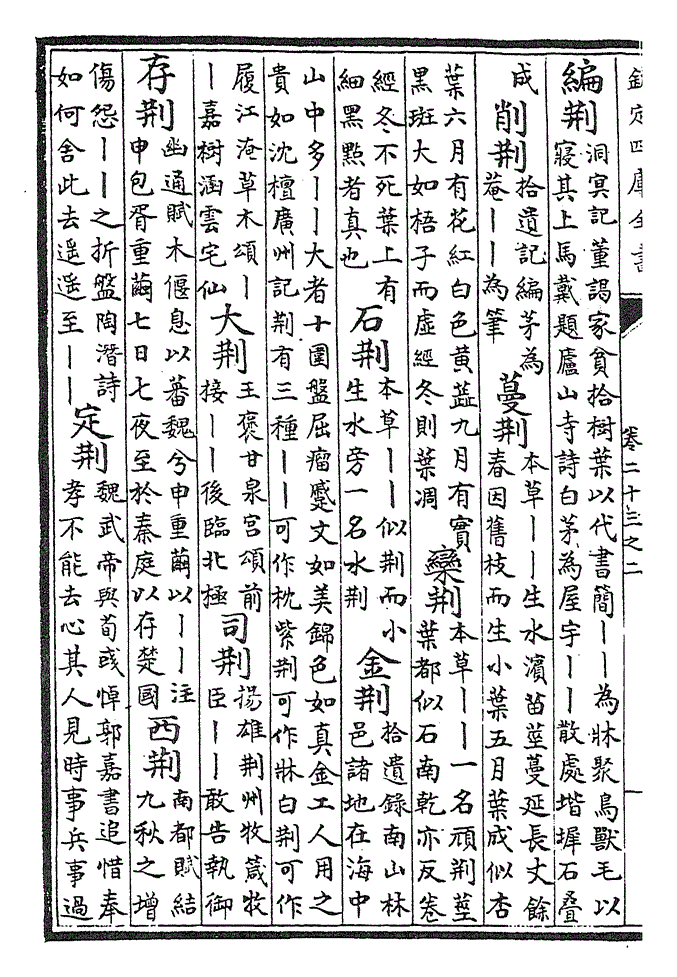 欽定四庫全書
卷二十三之二
一
編荆
洞冥記董謁家貧拾樹葉以代書簡丨丨為牀聚鳥獸毛以
寢其上馬戴題廬山寺詩白茅為屋宇丨丨散處堦墀石疊
成
削荆
拾遺記編茅為
菴丨丨為筆
蔓荆
本草丨丨生水濱苗莖蔓延長丈餘
春因舊枝而生小葉五月葉成似杏
葉六月有花紅白色黃蕋九月有實
黑斑大如梧子而虛經冬則葉凋
欒荆
本草丨丨一名頑荆莖
葉都似石南乾亦反卷
經冬不死葉上有
細黑點者真也
石荆
本草丨丨似荆而小
生水旁一名水荆
金荆
拾遺錄南山林
邑諸地在海中
山中多丨丨大者十圍盤屈瘤蹙文如美錦色如真金工人用之
貴如沈檀廣州記荆有三種丨丨可作枕紫荆可作牀白荆可作
履江淹草木頌丨
丨嘉樹涵雲宅仙
大荆
王褒甘泉宮頌前
接丨丨後臨北極
司荆
揚雄荆州牧箴牧
臣丨丨敢告執御
存荆
幽通賦木偃息以蕃魏兮申重繭以丨丨注
申包胥重繭七日七夜至於秦庭以存楚國
西荆
南都賦結
九秋之增
傷怨丨丨之折盤陶潛詩
如何舍此去遥遥至丨丨
定荆
魏武帝與荀彧悼郭嘉書追惜奉
孝不能去心其人見時事兵事過